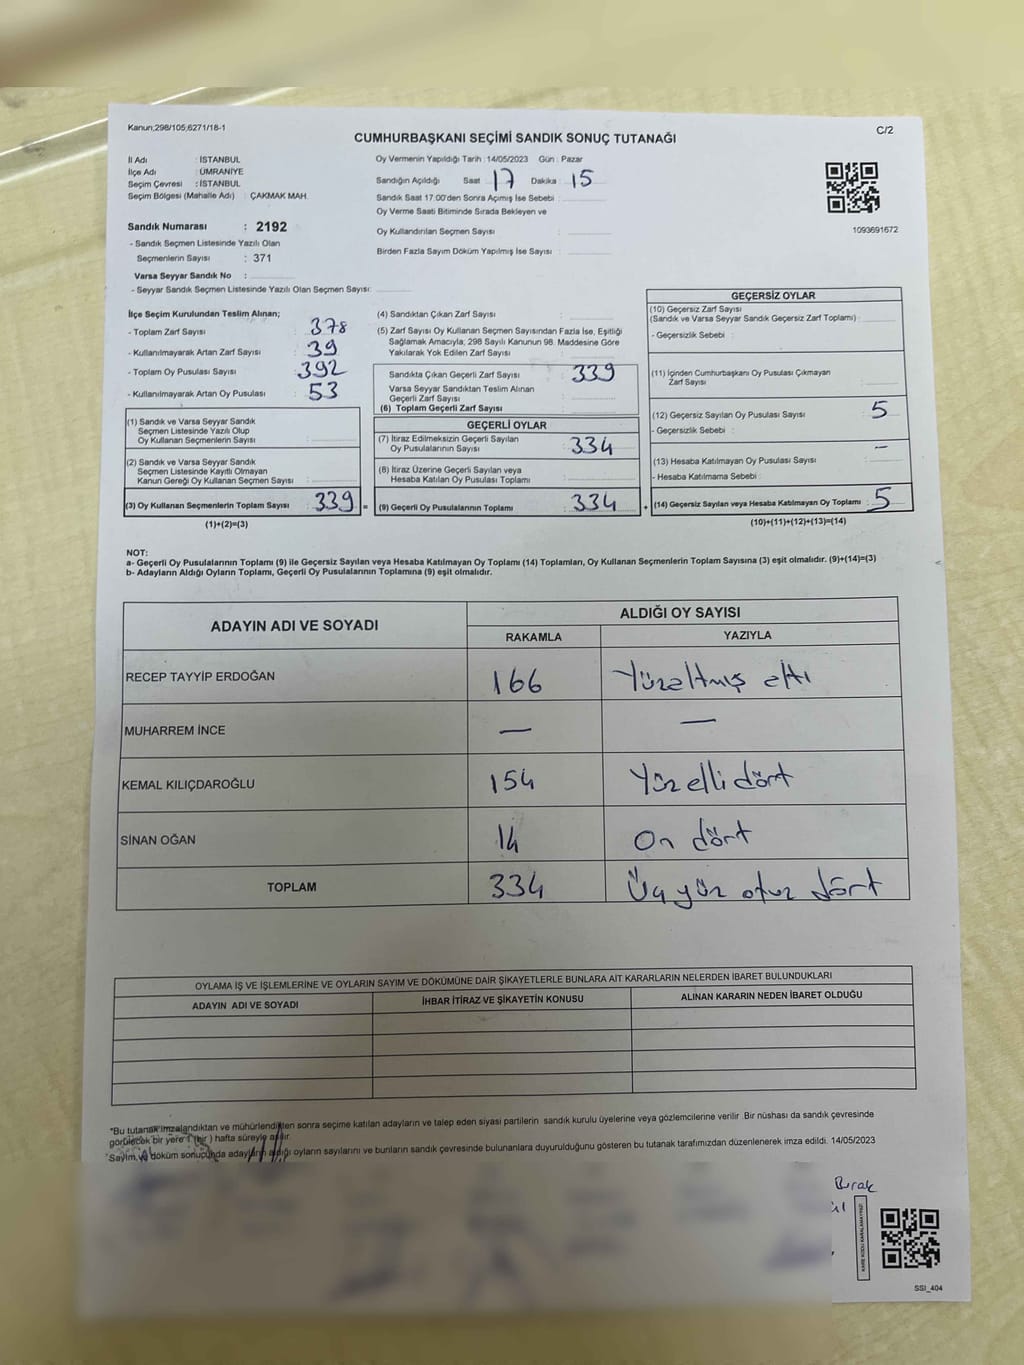 Kanun;298/105;6271/18-1
CUMHURBAŞKANI SEÇİMİ SANDIK SONUÇ TUTANAĞI
C/2
İl Adı : İSTANBUL
İlçe Adı : ÜMRANİYE
Seçim Çevresi : İSTANBUL
Seçim Bölgesi (Mahalle Adı) : ÇAKMAK MAH.
Oy Vermenin Yapıldığı Tarih :14/05/2023 Gün : Pazar
Sandığın Açıldığı Saat 17 Dakika : 15
Sandık Saat 17:00'den Sonra Açımış İse Sebebi :
Oy Verme Saati Bitiminde Sırada Bekleyen ve
Oy Kullandırılan Seçmen Sayısı :
Birden Fazla Sayım Döküm Yapılmış İse Sayısı :
1093691672
Sandık Numarası : 2192
- Sandık Seçmen Listesinde Yazılı Olan
Seçmenlerin Sayısı : 371
Varsa Seyyar Sandık No :
- Seyyar Sandık Seçmen Listesinde Yazılı Olan Seçmen Sayısı:
İlçe Seçim Kurulundan Teslim Alınan;
- Toplam Zarf Sayısı : 378
- Kullanılmayarak Artan Zarf Sayısı : 39
- Toplam Oy Pusulası Sayısı : 392
- Kullanılmayarak Artan Oy Pusulası : 53
(1) Sandık ve Varsa Seyyar Sandık
Seçmen Listesinde Yazılı Olup
Oy Kullanan Seçmenlerin Sayısı :
(2) Sandık ve Varsa Seyyar Sandık
Seçmen Listesinde Kayıtlı Olmayan
Kanun Gereği Oy Kullanan Seçmen Sayısı :
(3) Oy Kullanan Seçmenlerin Toplam Sayısı : 339
(1)+(2)=(3)
(4) Sandıktan Çıkan Zarf Sayısı :
(5) Zarf Sayısı Oy Kullanan Seçmen Sayısından Fazla İse, Eşitliği
Sağlamak Amacıyla, 298 Sayılı Kanunun 98. Maddesine Göre
Yakılarak Yok Edilen Zarf Sayısı :
Sandıkta Çıkan Geçerli Zarf Sayısı : 339
Varsa Seyyar Sandıktan Teslim Alınan
Geçerli Zarf Sayısı :
(6) Toplam Geçerli Zarf Sayısı :
GEÇERLİ OYLAR
(7) İtiraz Edilmeksizin Geçerli Sayılan
Oy Pusulalarının Sayısı : 334
(8) İtiraz Üzerine Geçerli Sayılan veya
Hesaba Katılan Oy Pusulası Toplamı :
= (9) Geçerli Oy Pusulalarının Toplamı : 334
GEÇERSİZ OYLAR
(10) Geçersiz Zarf Sayısı
(Sandık ve Varsa Seyyar Sandık Geçersiz Zarf Toplamı) :
- Geçersizlik Sebebi :
(11) İçinden Cumhurbaşkanı Oy Pusulası Çıkmayan
Zarf Sayısı :
(12) Geçersiz Sayılan Oy Pusulası Sayısı : 5
- Geçersizlik Sebebi :
(13) Hesaba Katılmayan Oy Pusulası Sayısı : —
- Hesaba Katılmama Sebebi :
+ (14) Geçersiz Sayılan veya Hesaba Katılmayan Oy Toplamı : 5
(10)+(11)+(12)+(13)=(14)
NOT:
a- Geçerli Oy Pusulalarının Toplamı (9) ile Geçersiz Sayılan veya Hesaba Katılmayan Oy Toplamı (14) Toplamları, Oy Kullanan Seçmenlerin Toplam Sayısına (3) eşit olmalıdır. (9)+(14)=(3)
b- Adayların Aldığı Oyların Toplamı, Geçerli Oy Pusulalarının Toplamına (9) eşit olmalıdır.
ADAYIN ADI VE SOYADI
ALDIĞI OY SAYISI
RAKAMLA YAZIYLA
RECEP TAYYİP ERDOĞAN 166 Yüzaltmış altı
MUHARREM İNCE — —
KEMAL KILIÇDAROĞLU 154 Yüz elli dört
SİNAN OĞAN 14 On dört
TOPLAM 334 Üç yüz otuz dört
OYLAMA İŞ VE İŞLEMLERİNE VE OYLARIN SAYIM VE DÖKÜMÜNE DAİR ŞİKAYETLERLE BUNLARA AİT KARARLARIN NELERDEN İBARET BULUNDUKLARI
ADAYIN ADI VE SOYADI İHBAR İTİRAZ VE ŞİKAYETİN KONUSU ALINAN KARARIN NEDEN İBARET OLDUĞU
*Bu tutanak imzalandıktan ve mühürlendikten sonra seçime katılan adayların ve talep eden siyasi partilerin sandık kurulu üyelerine veya gözlemcilerine verilir. Bir nüshası da sandık çevresinde
görülecek bir yere 1 (bir) hafta süreyle asılır.
*Sayım ve döküm sonucunda adayların aldığı oyların sayılarını ve bunların sandık çevresinde bulunanlara duyurulduğunu gösteren bu tutanak tarafımızdan düzenlenerek imza edildi. 14/05/2023
Burak
KARE KODU KARALAMAYINIZ!
SSI_404